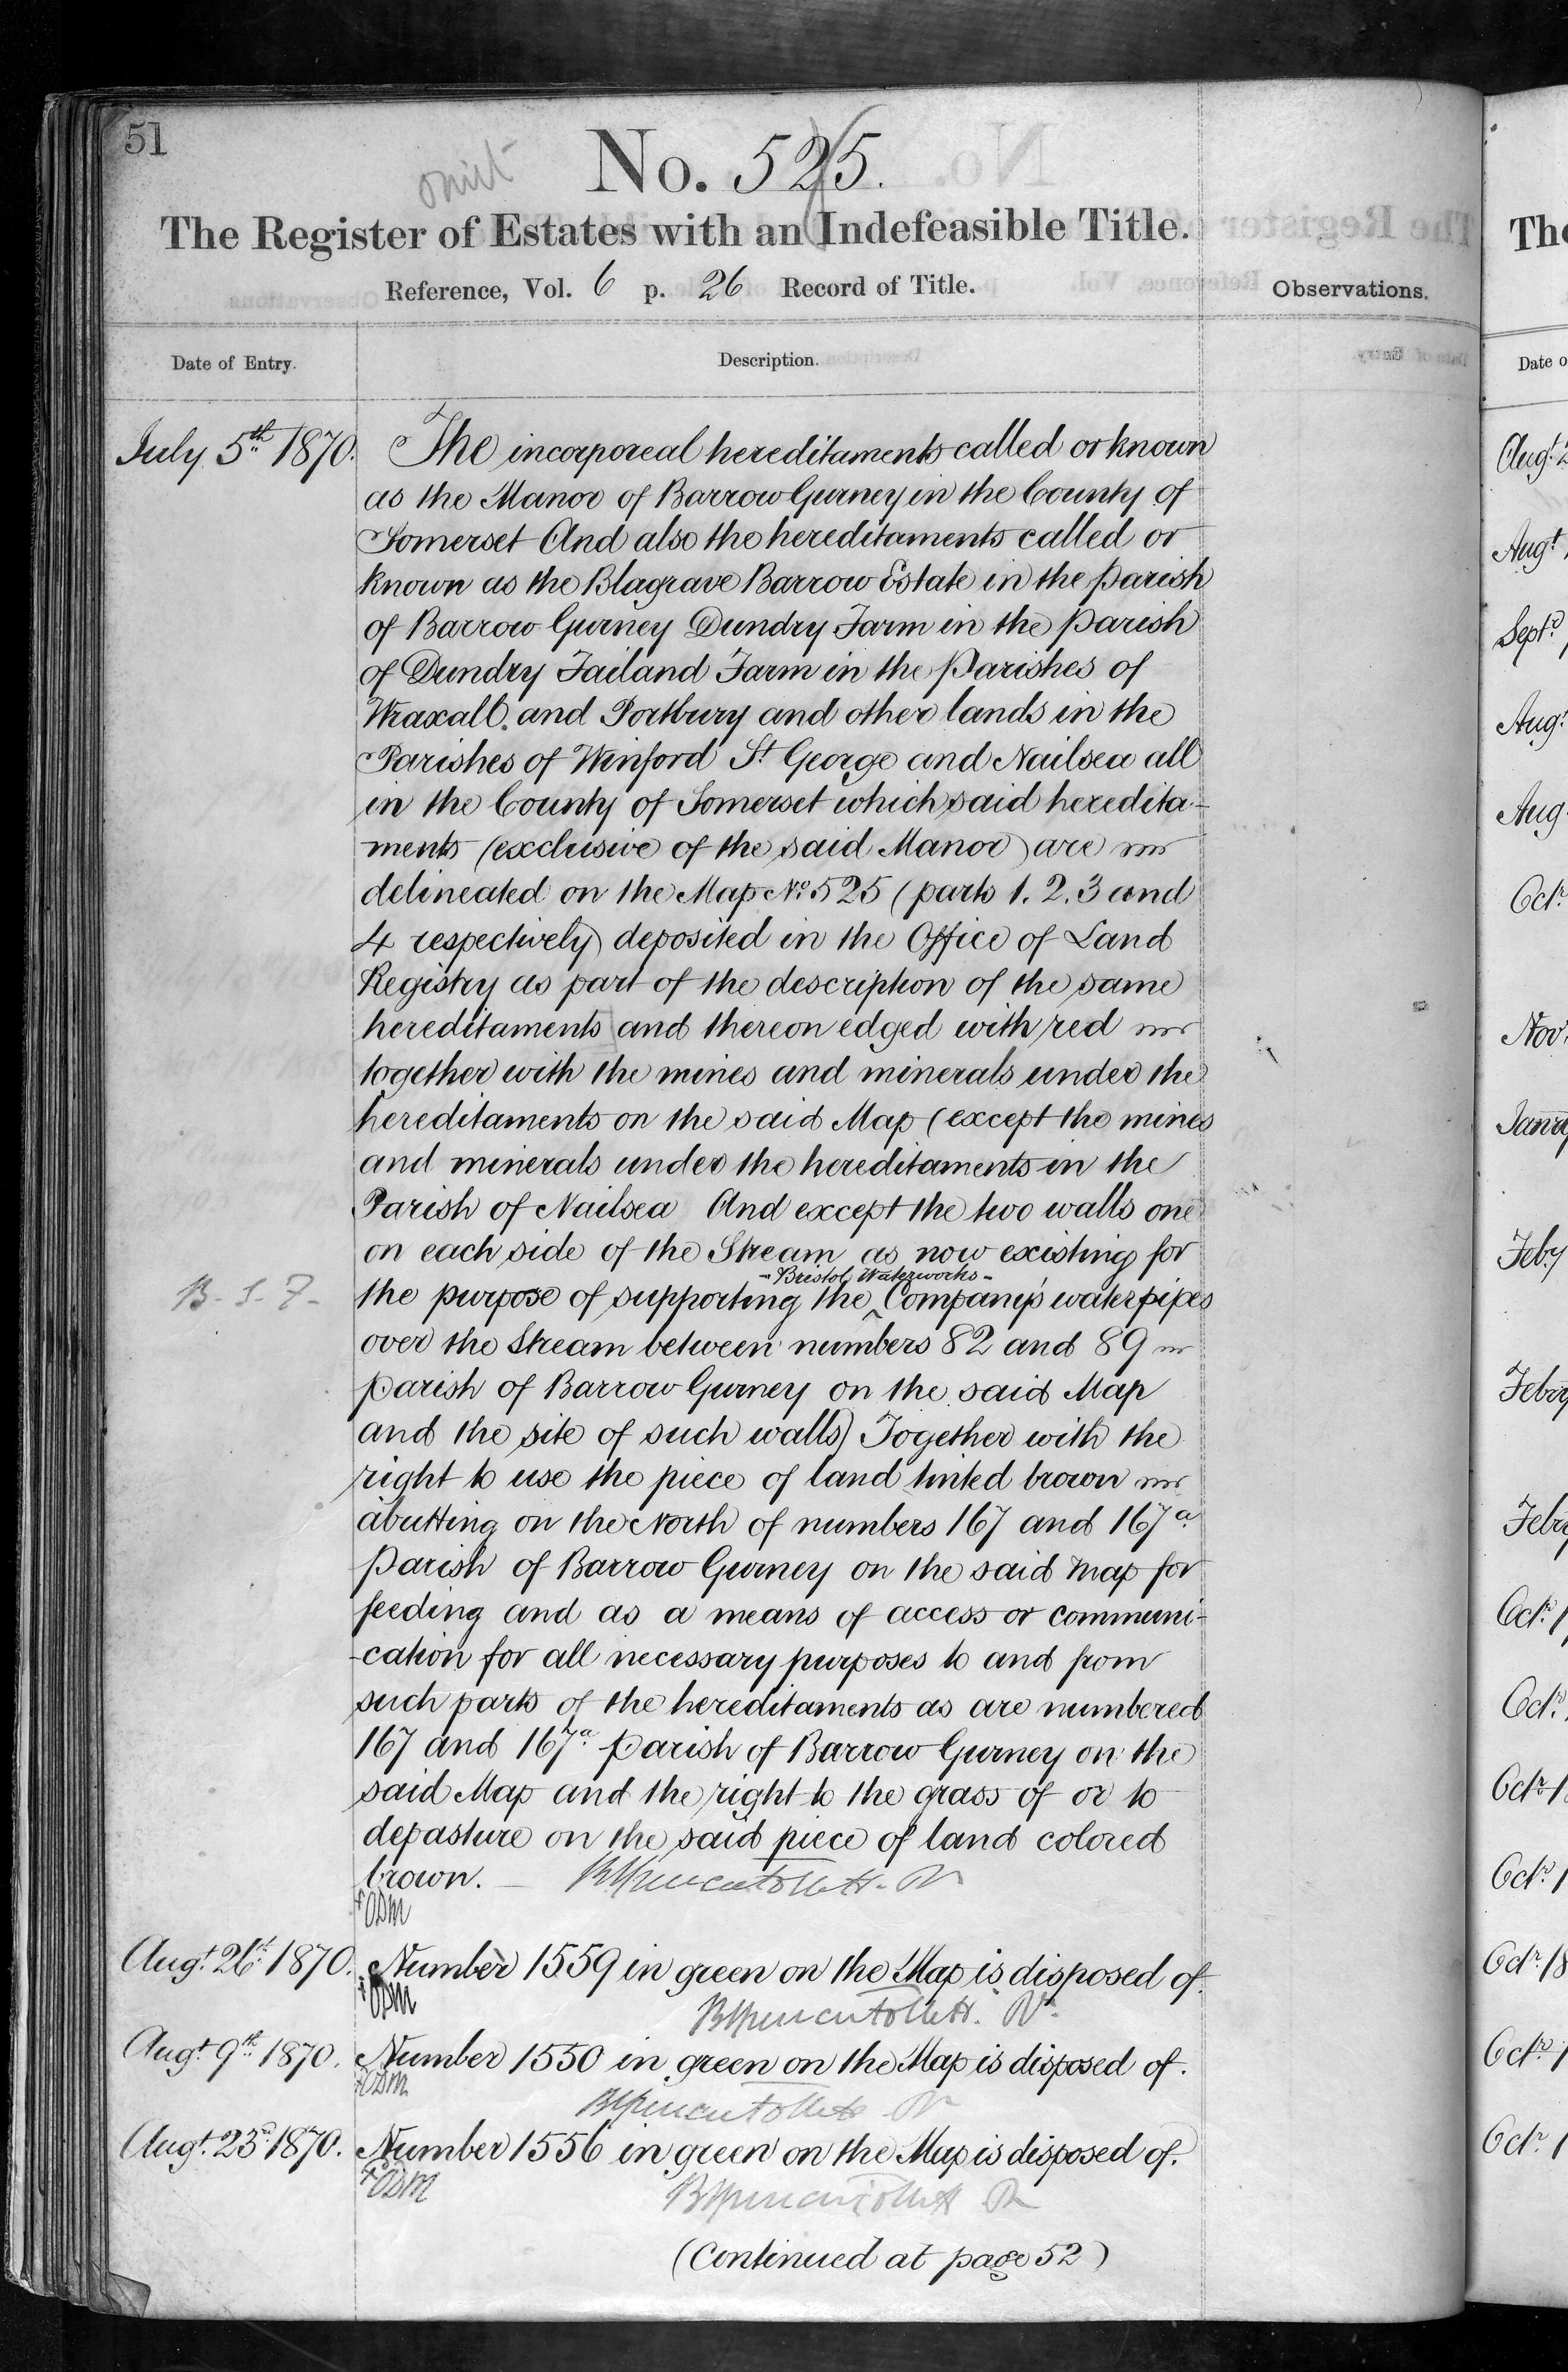 51
omit
No. 525.
The Register of Estates with an Indefeasible Title.
Reference, Vol. 6 p. 26 Record of Title.
Observations.
Date of Entry.
Description.
July 5th 1870. The incorporeal hereditaments called or known
as the Manor of Barrow Gurney in the County of
Somerset And also the hereditaments called or
known as the Blagrave Barrow Estate in the parish
of Barrow Gurney Dundry Farm in the parish
of Dundry Failand Farm in the Parishes of
Wraxall and Portbury and other lands in the
Parishes of Winford St George and Nailsea all
in the County of Somerset which said heredita-
ments (exclusive of the said Manor) are
delineated on the Map No 525 (parts 1. 2. 3 and
4 respectively) deposited in the Office of Land
Registry as part of the description of the same
hereditaments and thereon edged with red
together with the mines and minerals under the
hereditaments on the said Map (except the mines
and minerals under the hereditaments in the
Parish of Nailsea And except the two walls one
on each side of the Stream as now existing for
- Bristol Waterworks -
the purpose of supporting the ^ Company's water pipes
over the Stream between numbers 82 and 89
parish of Barrow Gurney on the said Map
and the site of such walls) Together with the
right to use the piece of land tinted brown
abutting on the North of numbers 167 and 167a
Parish of Barrow Gurney on the said Map for
feeding and as a means of access or communi-
-cation for all necessary purposes to and from
such parts of the hereditaments as are numbered
167 and 167a parish of Barrow Gurney on the
said Map and the right to the grass of or to
depasture on the said piece of land colored
brown.
Augt. 26th 1870. Number 1559 in green on the Map is disposed of.
Augt. 9th 1870. Number 1550 in green on the Map is disposed of.
Augt. 23rd 1870. Number 1556 in green on the Map is disposed of.
(Continued at page 52)